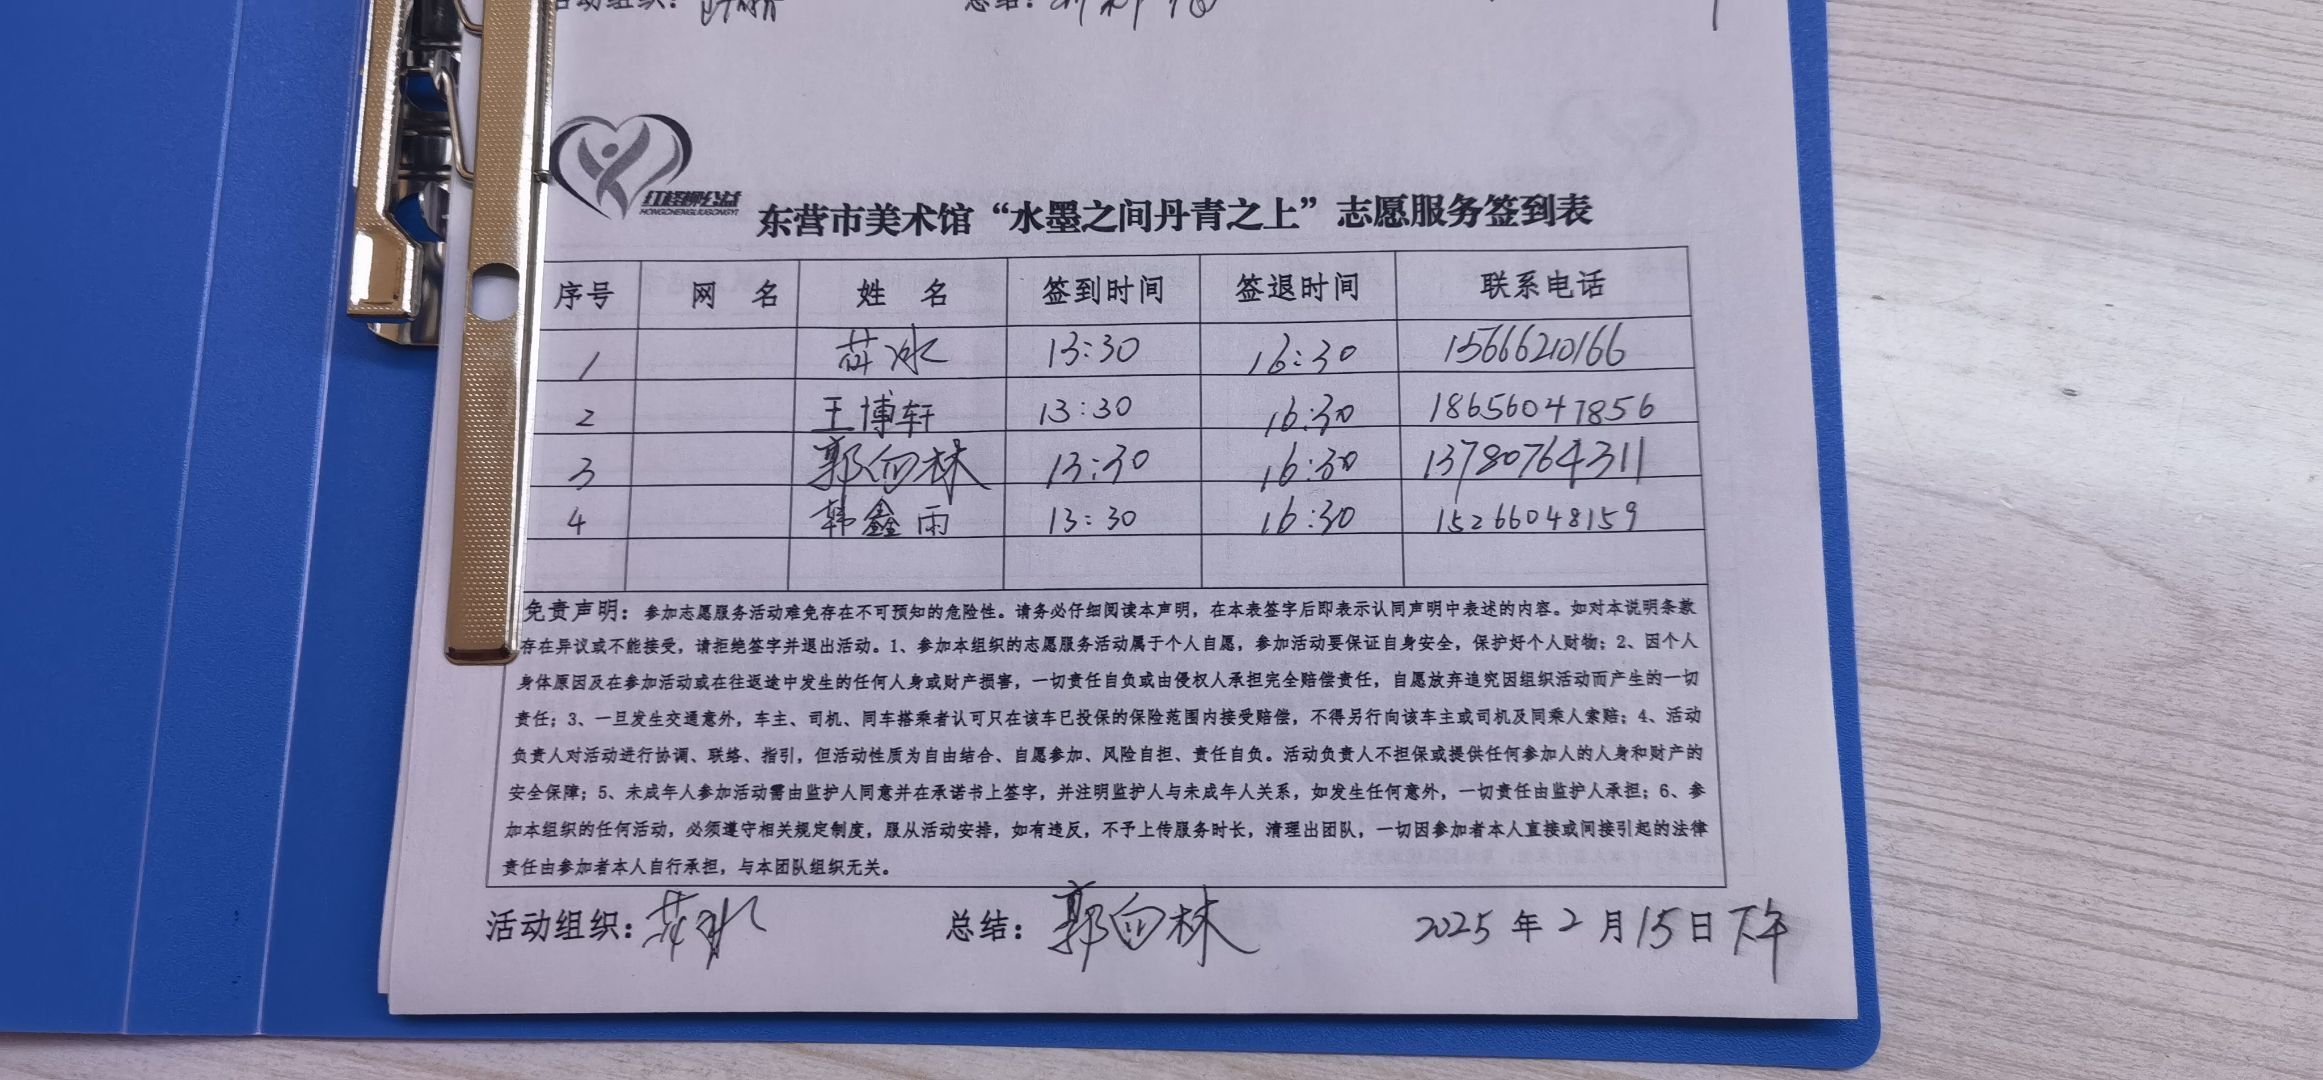 活动组织：
总结：
红柽柳公益
HONGCHENGLIUGONGYI
东营市美术馆“水墨之间丹青之上”志愿服务签到表
序号 网 名 姓 名 签到时间 签退时间 联系电话
1 薛冰 13:30 16:30 15666210166
2 王博轩 13:30 16:30 18656047856
3 郭向林 13:30 16:30 13780764311
4 韩鑫雨 13:30 16:30 15266048159
免责声明：参加志愿服务活动难免存在不可预知的危险性。请务必仔细阅读本声明，在本表签字后即表示认同声明中表述的内容。如对本说明条款
存在异议或不能接受，请拒绝签字并退出活动。1、参加本组织的志愿服务活动属于个人自愿，参加活动要保证自身安全，保护好个人财物；2、因个人
身体原因及在参加活动或在往返途中发生的任何人身或财产损害，一切责任自负或由侵权人承担完全赔偿责任，自愿放弃追究因组织活动而产生的一切
责任；3、一旦发生交通意外，车主、司机、同车搭乘者认可只在该车已投保的保险范围内接受赔偿，不得另行向该车主或司机及同乘人索赔；4、活动
负责人对活动进行协调、联络、指引，但活动性质为自由结合、自愿参加、风险自担、责任自负。活动负责人不担保或提供任何参加人的人身和财产的
安全保障；5、未成年人参加活动需由监护人同意并在承诺书上签字，并注明监护人与未成年人关系，如发生任何意外，一切责任由监护人承担；6、参
加本组织的任何活动，必须遵守相关规定制度，服从活动安排，如有违反，不予上传服务时长，清理出团队，一切因参加者本人直接或间接引起的法律
责任由参加者本人自行承担，与本团队组织无关。
活动组织：薛冰 总结：郭向林 2025年2月15日下午